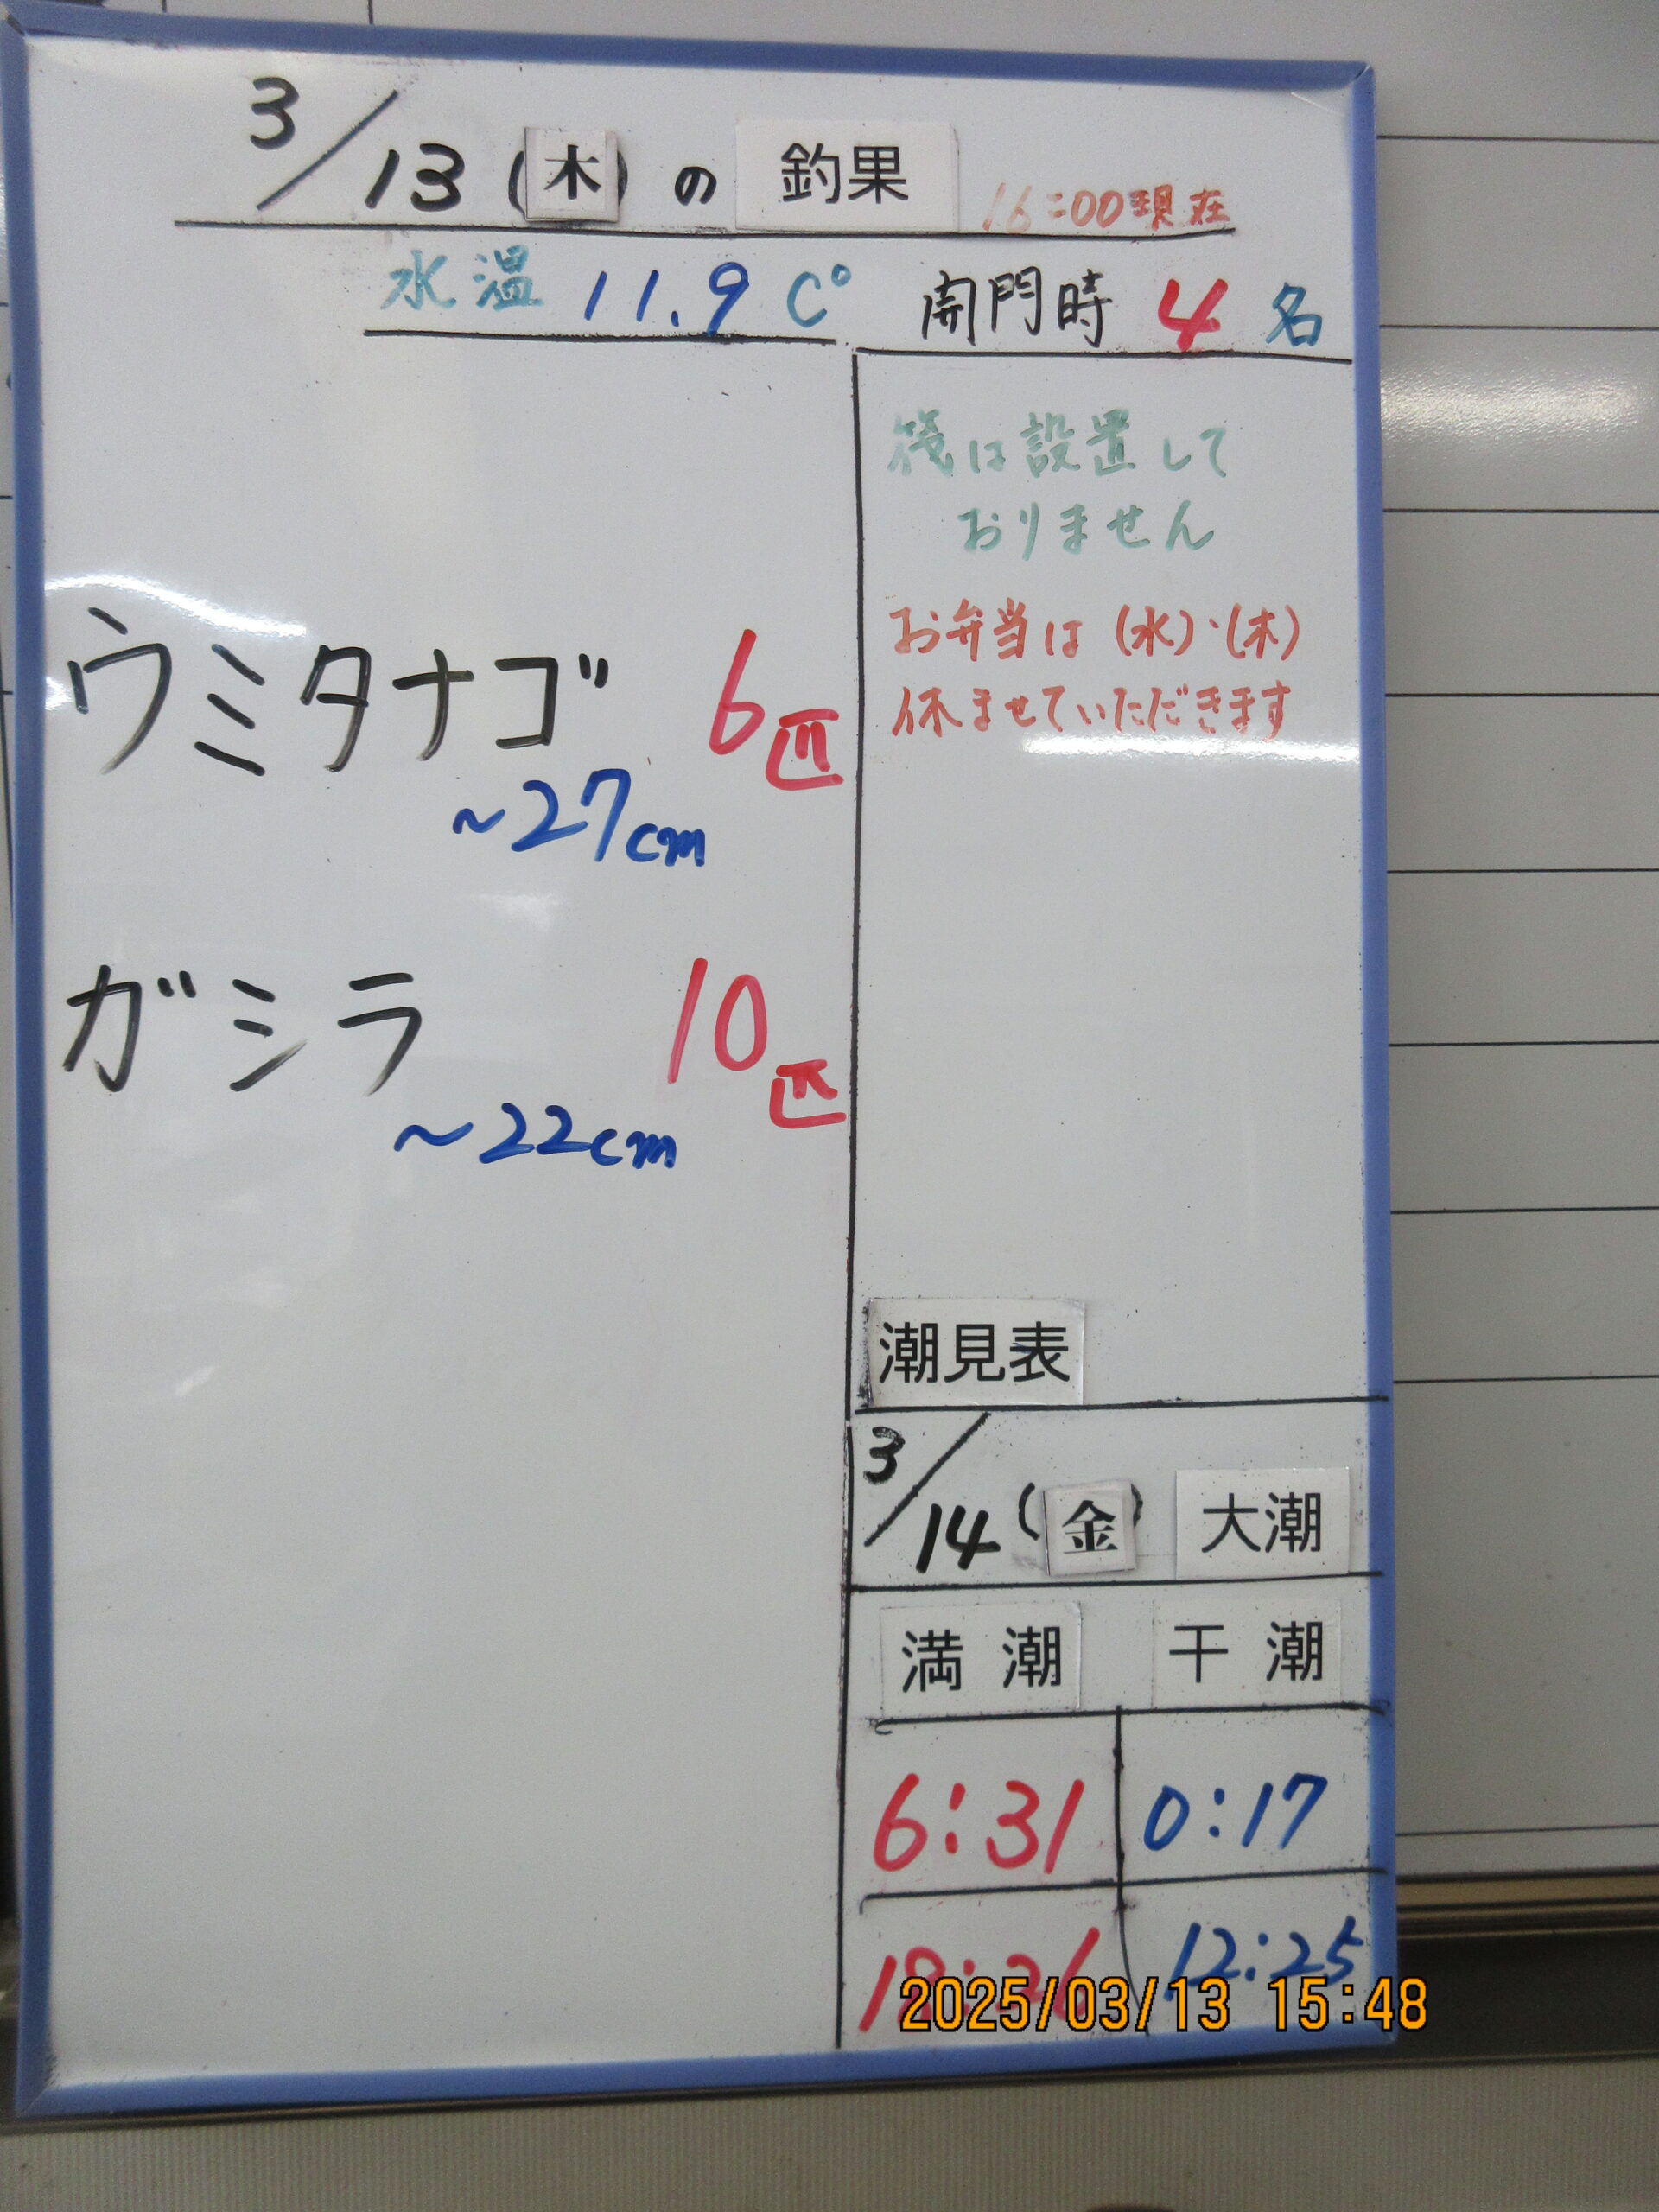 3/13(木)の 釣果 16:00現在
水温 11.9 C° 開門時 4名
筏は設置して
おりません
お弁当は(水)・(木)
休ませていただきます
ウミタナゴ 6匹
~27cm
ガシラ 10匹
~22cm
潮見表
3/14(金) 大潮
満潮 干潮
6:31 0:17
12:25
2025/03/13 15:48